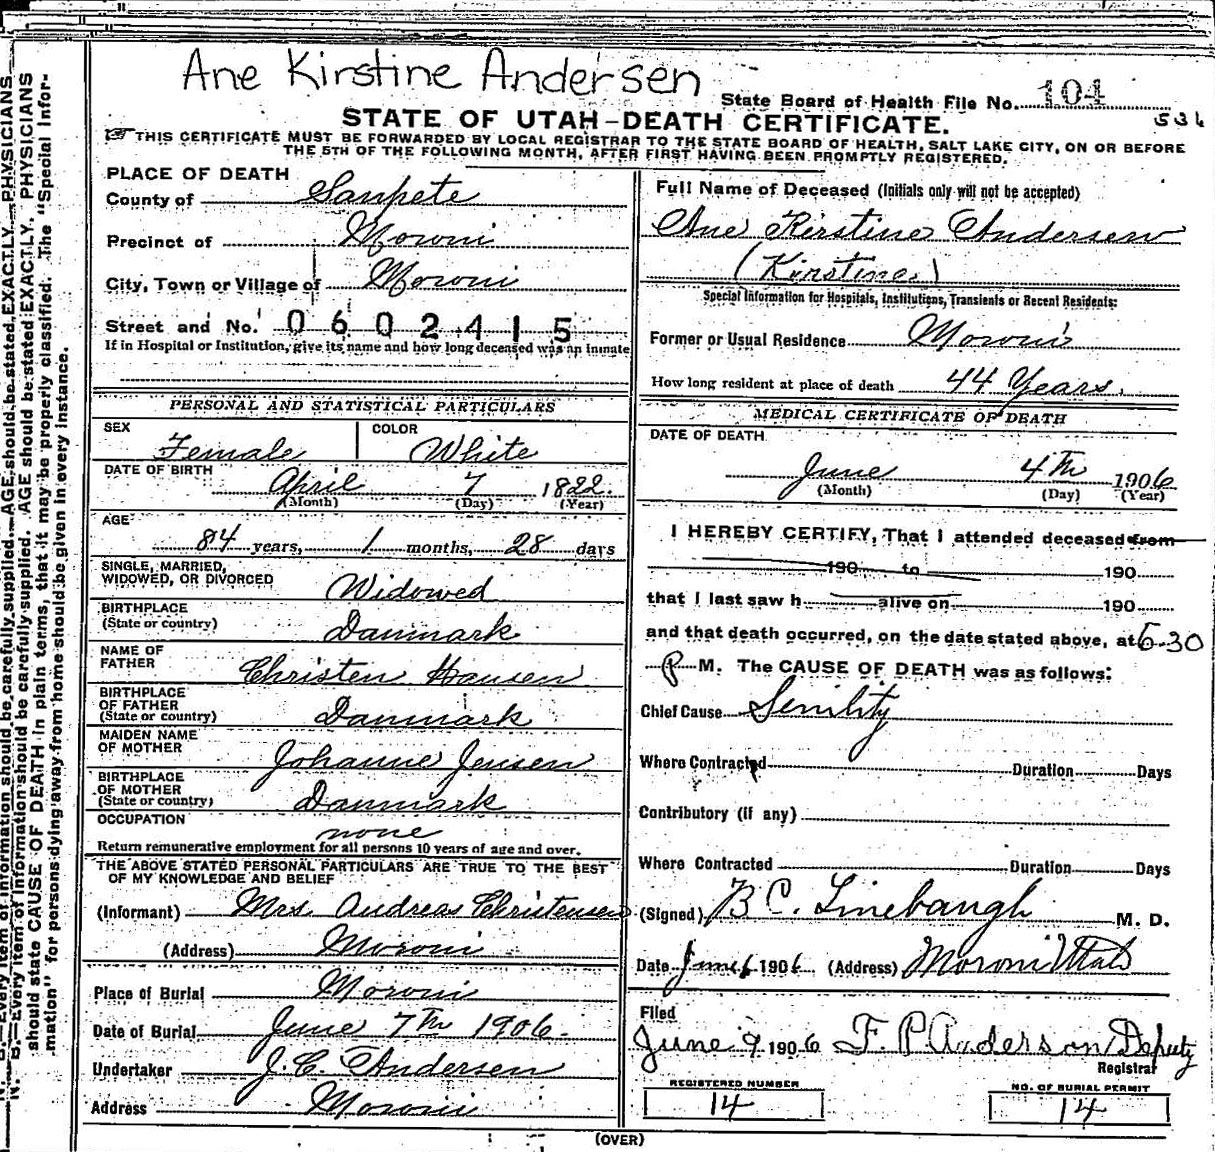 Ane Kirstine Andersen
State Board of Health File No. 104
536
STATE OF UTAH-DEATH CERTIFICATE.
THIS CERTIFICATE MUST BE FORWARDED BY LOCAL REGISTRAR TO THE STATE BOARD OF HEALTH, SALT LAKE CITY, ON OR BEFORE
THE 5TH OF THE FOLLOWING MONTH, AFTER FIRST HAVING BEEN PROMPTLY REGISTERED.
PLACE OF DEATH
County of Sanpete
Precinct of Moroni
City, Town or Village of Moroni
Street and No. 0602415
If in Hospital or Institution, give its name and how long deceased was an inmate
PERSONAL AND STATISTICAL PARTICULARS
SEX Female COLOR White
DATE OF BIRTH April 7 1822.
(Month) (Day) (Year)
AGE
84 years, 1 months, 28 days
SINGLE, MARRIED,
WIDOWED, OR DIVORCED Widowed
BIRTHPLACE
(State or country) Danmark
NAME OF
FATHER Christen Hansen
BIRTHPLACE
OF FATHER
(State or country) Danmark
MAIDEN NAME
OF MOTHER Johanne Jensen
BIRTHPLACE
OF MOTHER
(State or country) Danmark
OCCUPATION
none
Return remunerative employment for all persons 10 years of age and over.
THE ABOVE STATED PERSONAL PARTICULARS ARE TRUE TO THE BEST
OF MY KNOWLEDGE AND BELIEF
(Informant) Mrs. Andreas Christensen
(Address) Moroni
Place of Burial Moroni
Date of Burial June 7th 1906.
Undertaker J. C. Andersen
Address Moroni
Full Name of Deceased (Initials only will not be accepted)
Ane Kirstine Andersen
(Kirstine)
Special Information for Hospitals, Institutions, Transients or Recent Residents:
Former or Usual Residence Moroni
How long resident at place of death 44 Years.
MEDICAL CERTIFICATE OF DEATH
DATE OF DEATH
June 4th 1906
(Month) (Day) (Year)
I HEREBY CERTIFY, That I attended deceased from
190 to 190
that I last saw h alive on 190
and that death occurred, on the date stated above, at 6-30
P M. The CAUSE OF DEATH was as follows:
Chief Cause Senility
Where Contracted Duration Days
Contributory (if any)
Where Contracted Duration Days
(Signed) B C. Linebaugh M. D.
Date June 6 1906 (Address) Moroni Utah
Filed
June 9 1906 F. P Anderson Deputy
Registrar
REGISTERED NUMBER
14
NO. OF BURIAL PERMIT
14
(OVER)
N. B.—Every item of information should be carefully supplied. AGE should be stated EXACTLY. PHYSICIANS
should state CAUSE OF DEATH in plain terms, that it may be properly classified. The "Special Infor-
mation" for persons dying away from home should be given in every instance.